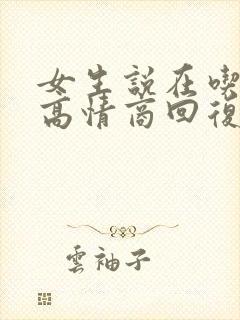 女生說在喫
高情商回復
雲袖子